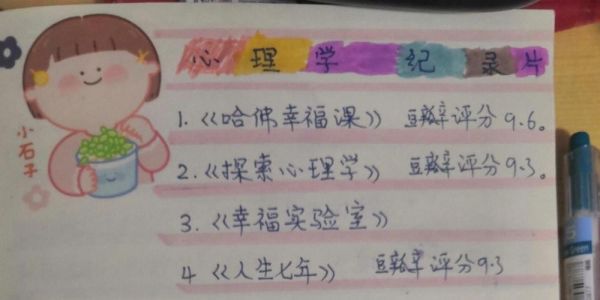 心理学纪录片
小石子
1.《哈佛幸福课》 豆瓣评分9.6。
2.《探索心理学》 豆瓣评分9.3。
3.《幸福实验室》
4《人生七年》 豆瓣评分9.3